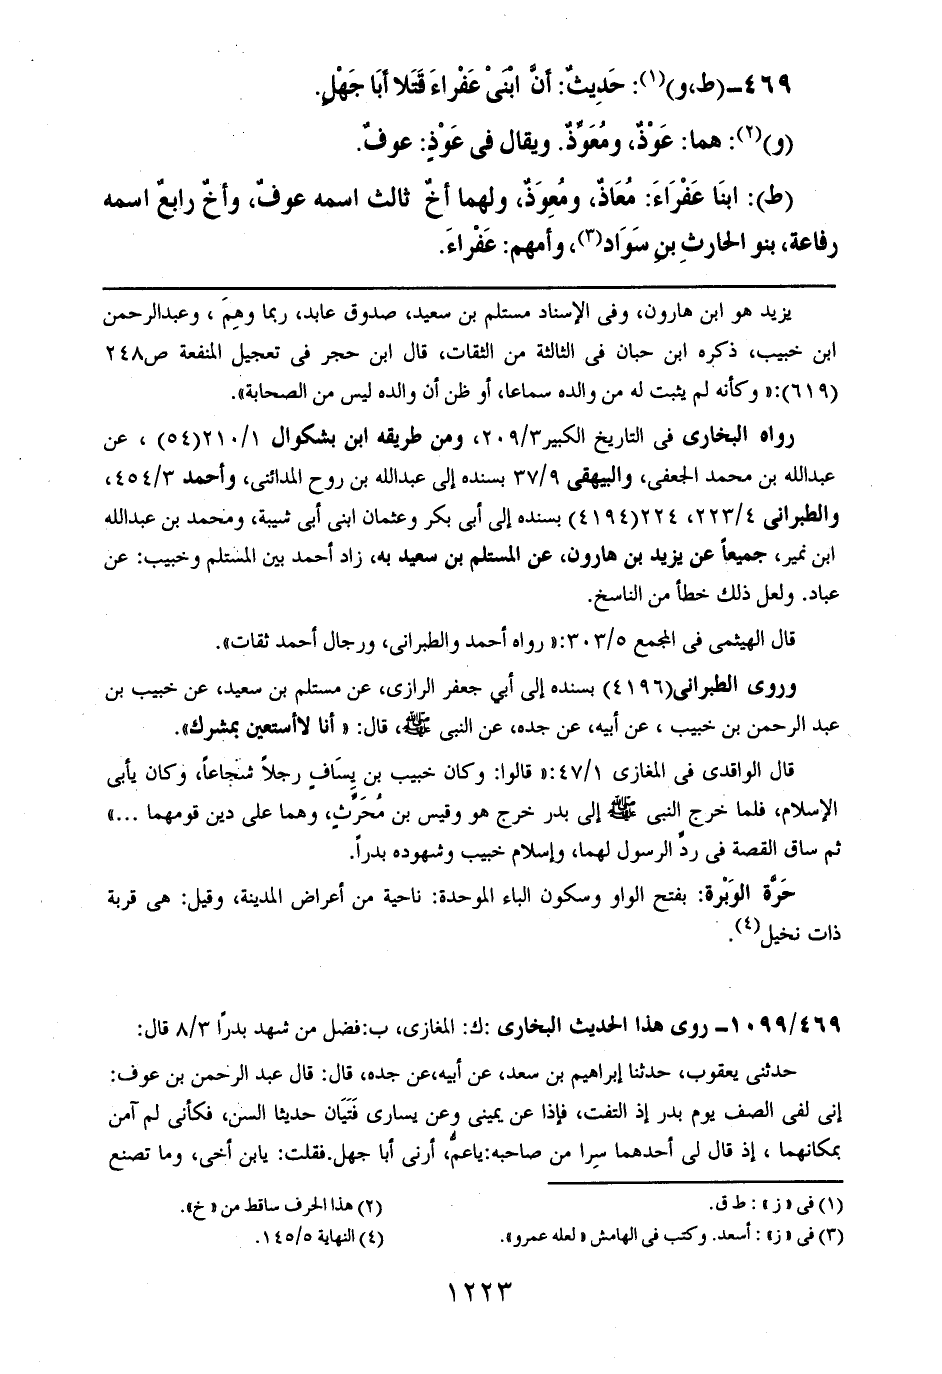 ٤٦٩ـ(ط،و)(١): حَدِيثٌ: أنَّ ابْنَىْ عَفْراءَ قَتَلا أبَا جَهْلٍ.
(و)(٢): هما: عَوْذٌ، ومُعَوِّذٌ. ويقال فى عَوْذٍ: عوفٌ.
(ط): ابنَا عَفْرَاءَ: مُعَاذٌ، ومُعِوَذٌ، ولهما أخٌ ثالث اسمه عوفٌ، وأخٌ رابعٌ اسمه
رفاعة، بنو الحارثِ بنِ سَوَاد(٣)، وأمهم: عَفْراءَ.
يزيد هو ابن هارون، وفى الإسناد مستلم بن سعيد، صدوق عابد، ربما وهِمَ ، وعبدالرحمن
ابن خبيب، ذكره ابن حبان فى الثالثة من الثقات، قال ابن حجر فى تعجيل المنفعة ص٢٤٨
(٦١٩):« وكأنه لم يثبت له من والده سماعا، أو ظن أن والده ليس من الصحابة».
رواه البخارى فى التاريخ الكبير٢٠٩/٣، ومن طريقه ابن بشكوال ٢١٠/١(٥٤) ، عن
عبدالله بن محمد الجعفى، والبيهقى ٣٧/٩ بسنده إلى عبدالله بن روح المدائنى، وأحمد ٤٥٤/٣،
والطبرانى ٢٢٣/٤، ٢٢٤(٤١٩٤) بسنده إلى أبى بكر وعثمان ابنى أبى شيبة، ومحمد بن عبدالله
ابن نمير، جميعاً عن يزيد بن هارون، عن المستلم بن سعيد به، زاد أحمد بين المستلم وخبيب: عن
عباد. ولعل ذلك خطأ من الناسخ.
قال الهيثمى فى المجمع ٣٠٣/٥:« رواه أحمد والطبرانى، ورجال أحمد ثقات».
وروى الطبرانى(٤١٩٦) بسنده إلى أبي جعفر الرازى، عن مستلم بن سعيد، عن خبيب بن
عبد الرحمن بن خبيب ، عن أبيه، عن جده، عن النبى ﷺ، قال: « أنا لاأستعين بمشرك».
قال الواقدى فى المغازى ٤٧/١:« قالوا: وكان خبيب بن يِسَافٍ رجلاً شجاعاً، وكان يأبى
الإسلام، فلما خرج النبى ﷺ إلى بدر خرج هو وقيس بن مُحَرِّثٍ، وهما على دين قومهما ...»
ثم ساق القصة فى ردِّ الرسول لهما، وإسلام خبيب وشهوده بدراً.
حَرَّة الوَبْرة: بفتح الواو وسكون الباء الموحدة: ناحية من أعراض المدينة، وقيل: هى قرية
ذات نخيل(٤).
١٠٩٩/٤٦٩ـ روى هذا الحديث البخارى :ك: المغازى، ب:فضل من شهد بدرًا ٨/٣ قال:
حدثنى يعقوب، حدثنا إبراهيم بن سعد، عن أبيه،عن جده، قال: قال عبد الرحمن بن عوف:
إنى لفى الصف يوم بدر إذ التفت، فإذا عن يمينى وعن يسارى فَتَيَان حديثا السن، فكأنى لم آمن
بمكانهما ، إذ قال لى أحدهما سِرا من صاحبه:ياعمُّ، أرنى أبا جهل.فقلت: يابن أخى، وما تصنع
(١) فى «ز» : ط ق. (٢) هذا الحرف ساقط من «خ».
(٣) فى «ز» : أسعد. وكتب فى الهامش «لعله عمرو». (٤) النهاية ١٤٥/٥.
١٢٢٣